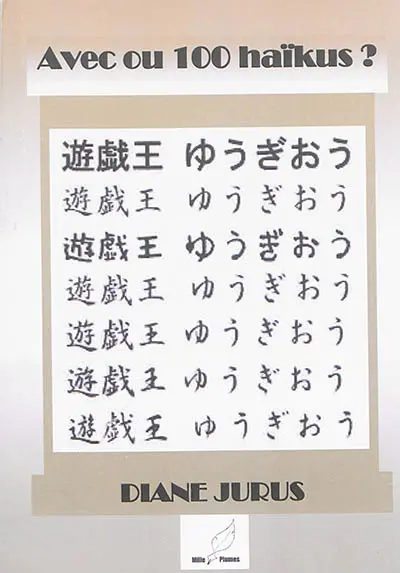 Avec ou 100 haïkus ?
遊戯王 ゆうぎおう
遊戯王 ゆうぎおう
遊戯王 ゆうぎおう
遊戯王 ゆうぎおう
遊戯王 ゆうぎおう
遊戯王 ゆうぎおう
遊戯王 ゆうぎおう
DIANE JURUS
Mille Plumes